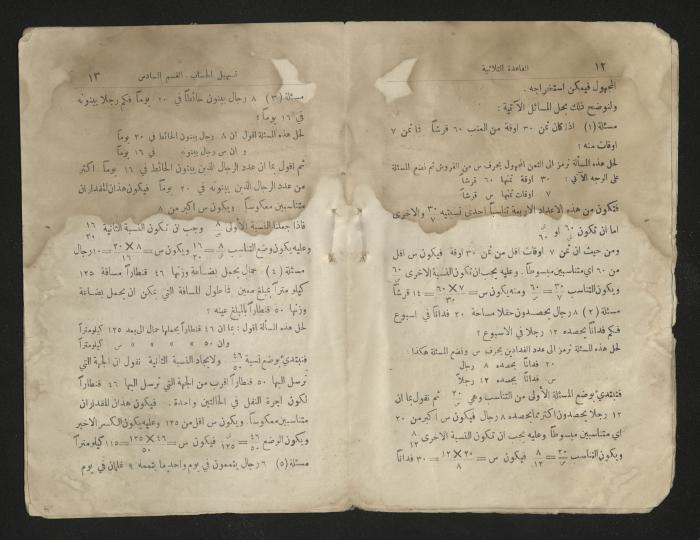 ١٢
القاعدة الثلاثية
المجهول فيمكن استخراجه .
ولنوضح ذلك بحل المسائل الآتية :
مسئلة (١) اذا كان ثمن ٣٠ اوقة من العنب ٦٠ قرشاً فما ثمن ٧
اوقات منه ؟
لحل هذه المسألة نرمز الى الثمن المجهول بحرف س من القروش ثم نضع المسئلة
على الوجه الآتي : ٣٠ اوقة ثمنها ٦٠ قرشاً
٧ اوقات ثمنها س قرشاً
فتتكون من هذه الاعداد الاربعة تناسباً احدى نسبتيه ٣٠/٧ والاخرى
اما ان تكون ٦٠/س او س/٦٠
ومن حيث ان ثمن ٧ اوقات اقل من ثمن ٣٠ اوقة فيكون س اقل
من ٦٠ اي متناسبين مبسوطاً . وعليه يجب ان تكون النسبة الاخرى ٦٠/س
ويكون التناسب ٣٠/٧ = ٦٠/س ومنه يكون س = ٧×٦٠/٣٠ = ١٤ قرشاً
مسئلة (٢) ٨ رجال يحصدون حقلا مساحة ٢٠ فداناً في اسبوع
فكم فداناً يحصده ١٢ رجلا في الاسبوع ؟
لحل هذه المسئلة نرمز الى عدد الفدادين بحرف س ونضع المسئلة هكذا :
٢٠ فداناً يحصده ٨ رجال
س فداناً يحصده ١٢ رجلاً
فنبتدئ بوضع المسئلة الأولى من التناسب وهي ٢٠/س ثم نقول بما ان
١٢ رجلا يحصدون اكثر مما يحصده ٨ رجال فيكون س اكبر من ٢٠
اي متناسبين مبسوطاً وعليه يجب ان تكون النسبة الاخرى ٨/١٢
ويكون التناسب ٢٠/س = ٨/١٢ فيكون س = ١٢×٢٠/٨ = ٣٠ فداناً
تسهيل الحساب . القسم السادس
١٣
مسئلة (٣) ٨ رجال يبنون حائطاً في ٢٠ يوماً فكم رجلا يبنونه
في ١٦ يوماً ؟
لحل هذه المسئلة اقول ان ٨ رجال يبنون الحائط في ٢٠ يوماً
و ان س رجال يبنونه في ١٦ يوماً
ثم اقول بما ان عدد الرجال الذين يبنون الحائط في ١٦ يوماً اكثر
من عدد الرجال الذين يبنونه في ٢٠ يوماً فيكون هذان المقداران
متناسبين معكوساً ويكون س اكبر من ٨
فاذا جعلنا النسبة الأولى ٨/س وجب ان تكون النسبة الثانية ١٦/٢٠
وعليه يكون وضع التناسب ٨/س = ١٦/٢٠ ويكون س = ٨×٢٠/١٦ = ١٠ رجال
مسئلة (٤) جمال يحمل بضاعة وزنها ٤٦ قنطاراً مسافة ١٢٥
كيلومتراً بمبلغ معين فما طول المسافة التي يمكن ان يحمل بضاعة
وزنها ٥٠ قنطاراً بالمبلغ عينه ؟
لحل هذه المسألة اقول : بما ان ٤٦ قنطاراً يحملها جمال الى بعد ١٢٥ كيلومتراً
وان ٥٠ » » » » س كيلومتراً
فنبتدئ بوضع نسبة ٤٦/٥٠ ولايجاد النسبة الثانية نقول ان الجهة التي
ترسل اليها ٥٠ قنطاراً اقرب من الجهة التي ترسل اليها ٤٦ قنطاراً
لكون اجرة النقل في الحالتين واحدة . فيكون هذان المقداران
متناسبين معكوساً . ويكون س اقل من ١٢٥ وعليه يكون الكسر الاخير
ويكون الوضع ٤٦/٥٠ = س/١٢٥ فيكون س = ٤٦×١٢٥/٥٠ = ١١٥ كيلومتراً
مسئلة (٥) ٦ رجال يتممون في يوم واحد ما يتممه ٩ غلمان في يوم